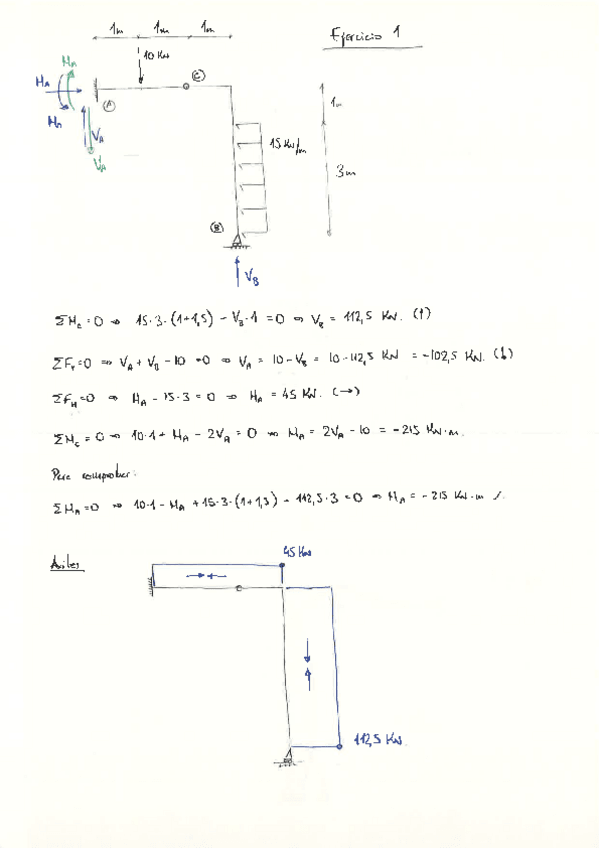 1m 1m 1m
Ejercicio 1
10 KN
HA
MA
MA
A
C
VA
VA
1m
15 KN/m
3m
B
VB
ΣMc=0 ⇒ 15·3·(1+1,5) - VB·1 = 0 ⇒ VB = 112,5 KN. (↑)
ΣFv=0 ⇒ VA + VB - 10 = 0 ⇒ VA = 10 - VB = 10 - 112,5 KN = -102,5 KN. (↓)
ΣFH=0 ⇒ HA - 15·3 = 0 ⇒ HA = 45 KN. (→)
ΣMc = 0 ⇒ 10·1 + MA - 2VA = 0 ⇒ MA = 2VA - 10 = -215 KN·m.
Para comprobar:
ΣMA=0 ⇒ 10·1 - MA + 15·3·(1+1,5) - 112,5·3 = 0 ⇒ MA = -215 KN·m
Axiles
45 KN
112,5 KN.